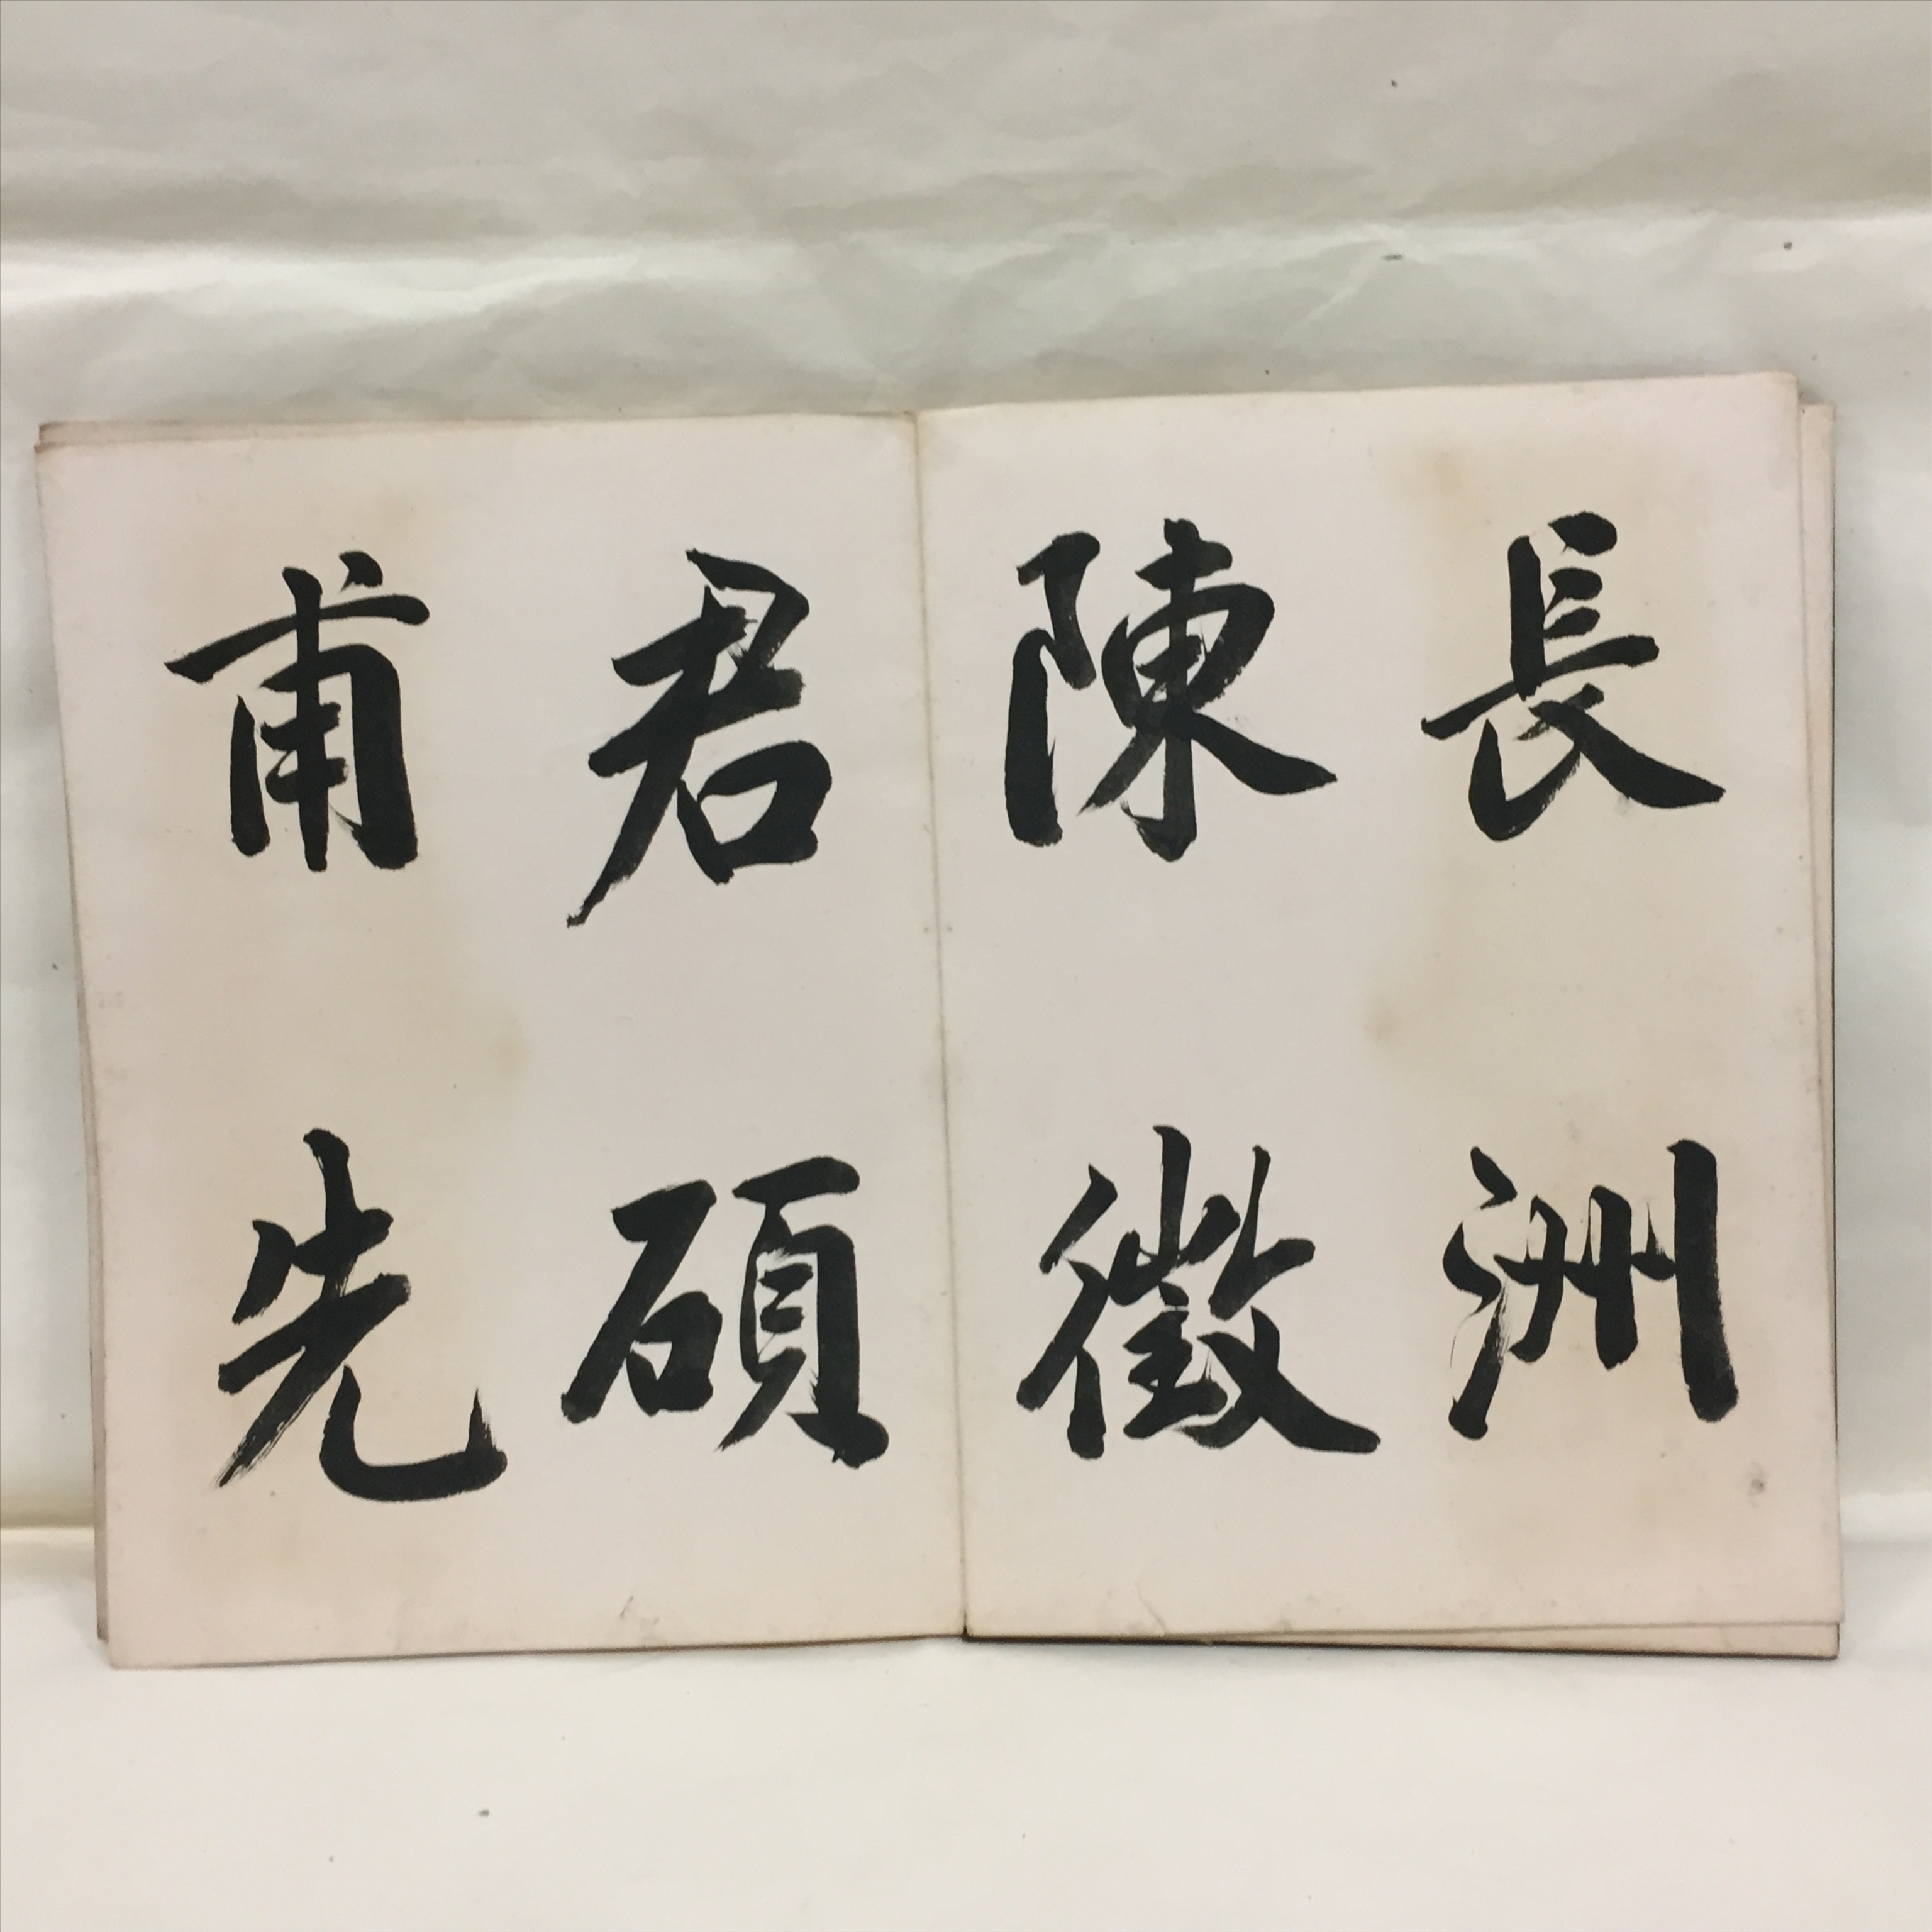 長洲
陳徵
君碩
甫先